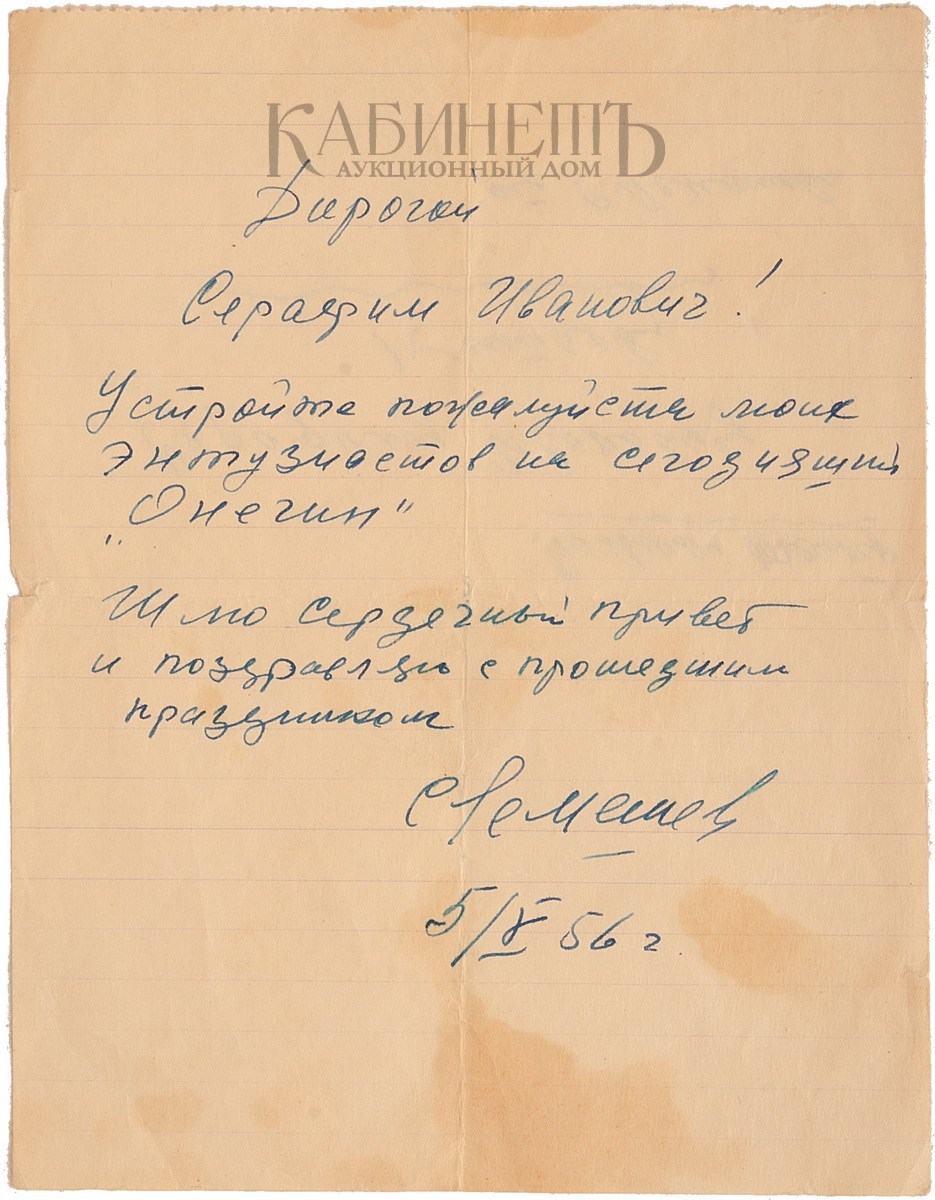 КАБИНЕТЪ
АУКЦИОННЫЙ ДОМ
Дорогой
Серафим Иванович!
Устройте пожалуйста моих
энтузиастов на сегодняшний
„Онегин"
Шлю сердечный привет
и поздравляю с прошедшим
праздником
С Лемешев
5/V 56 г.